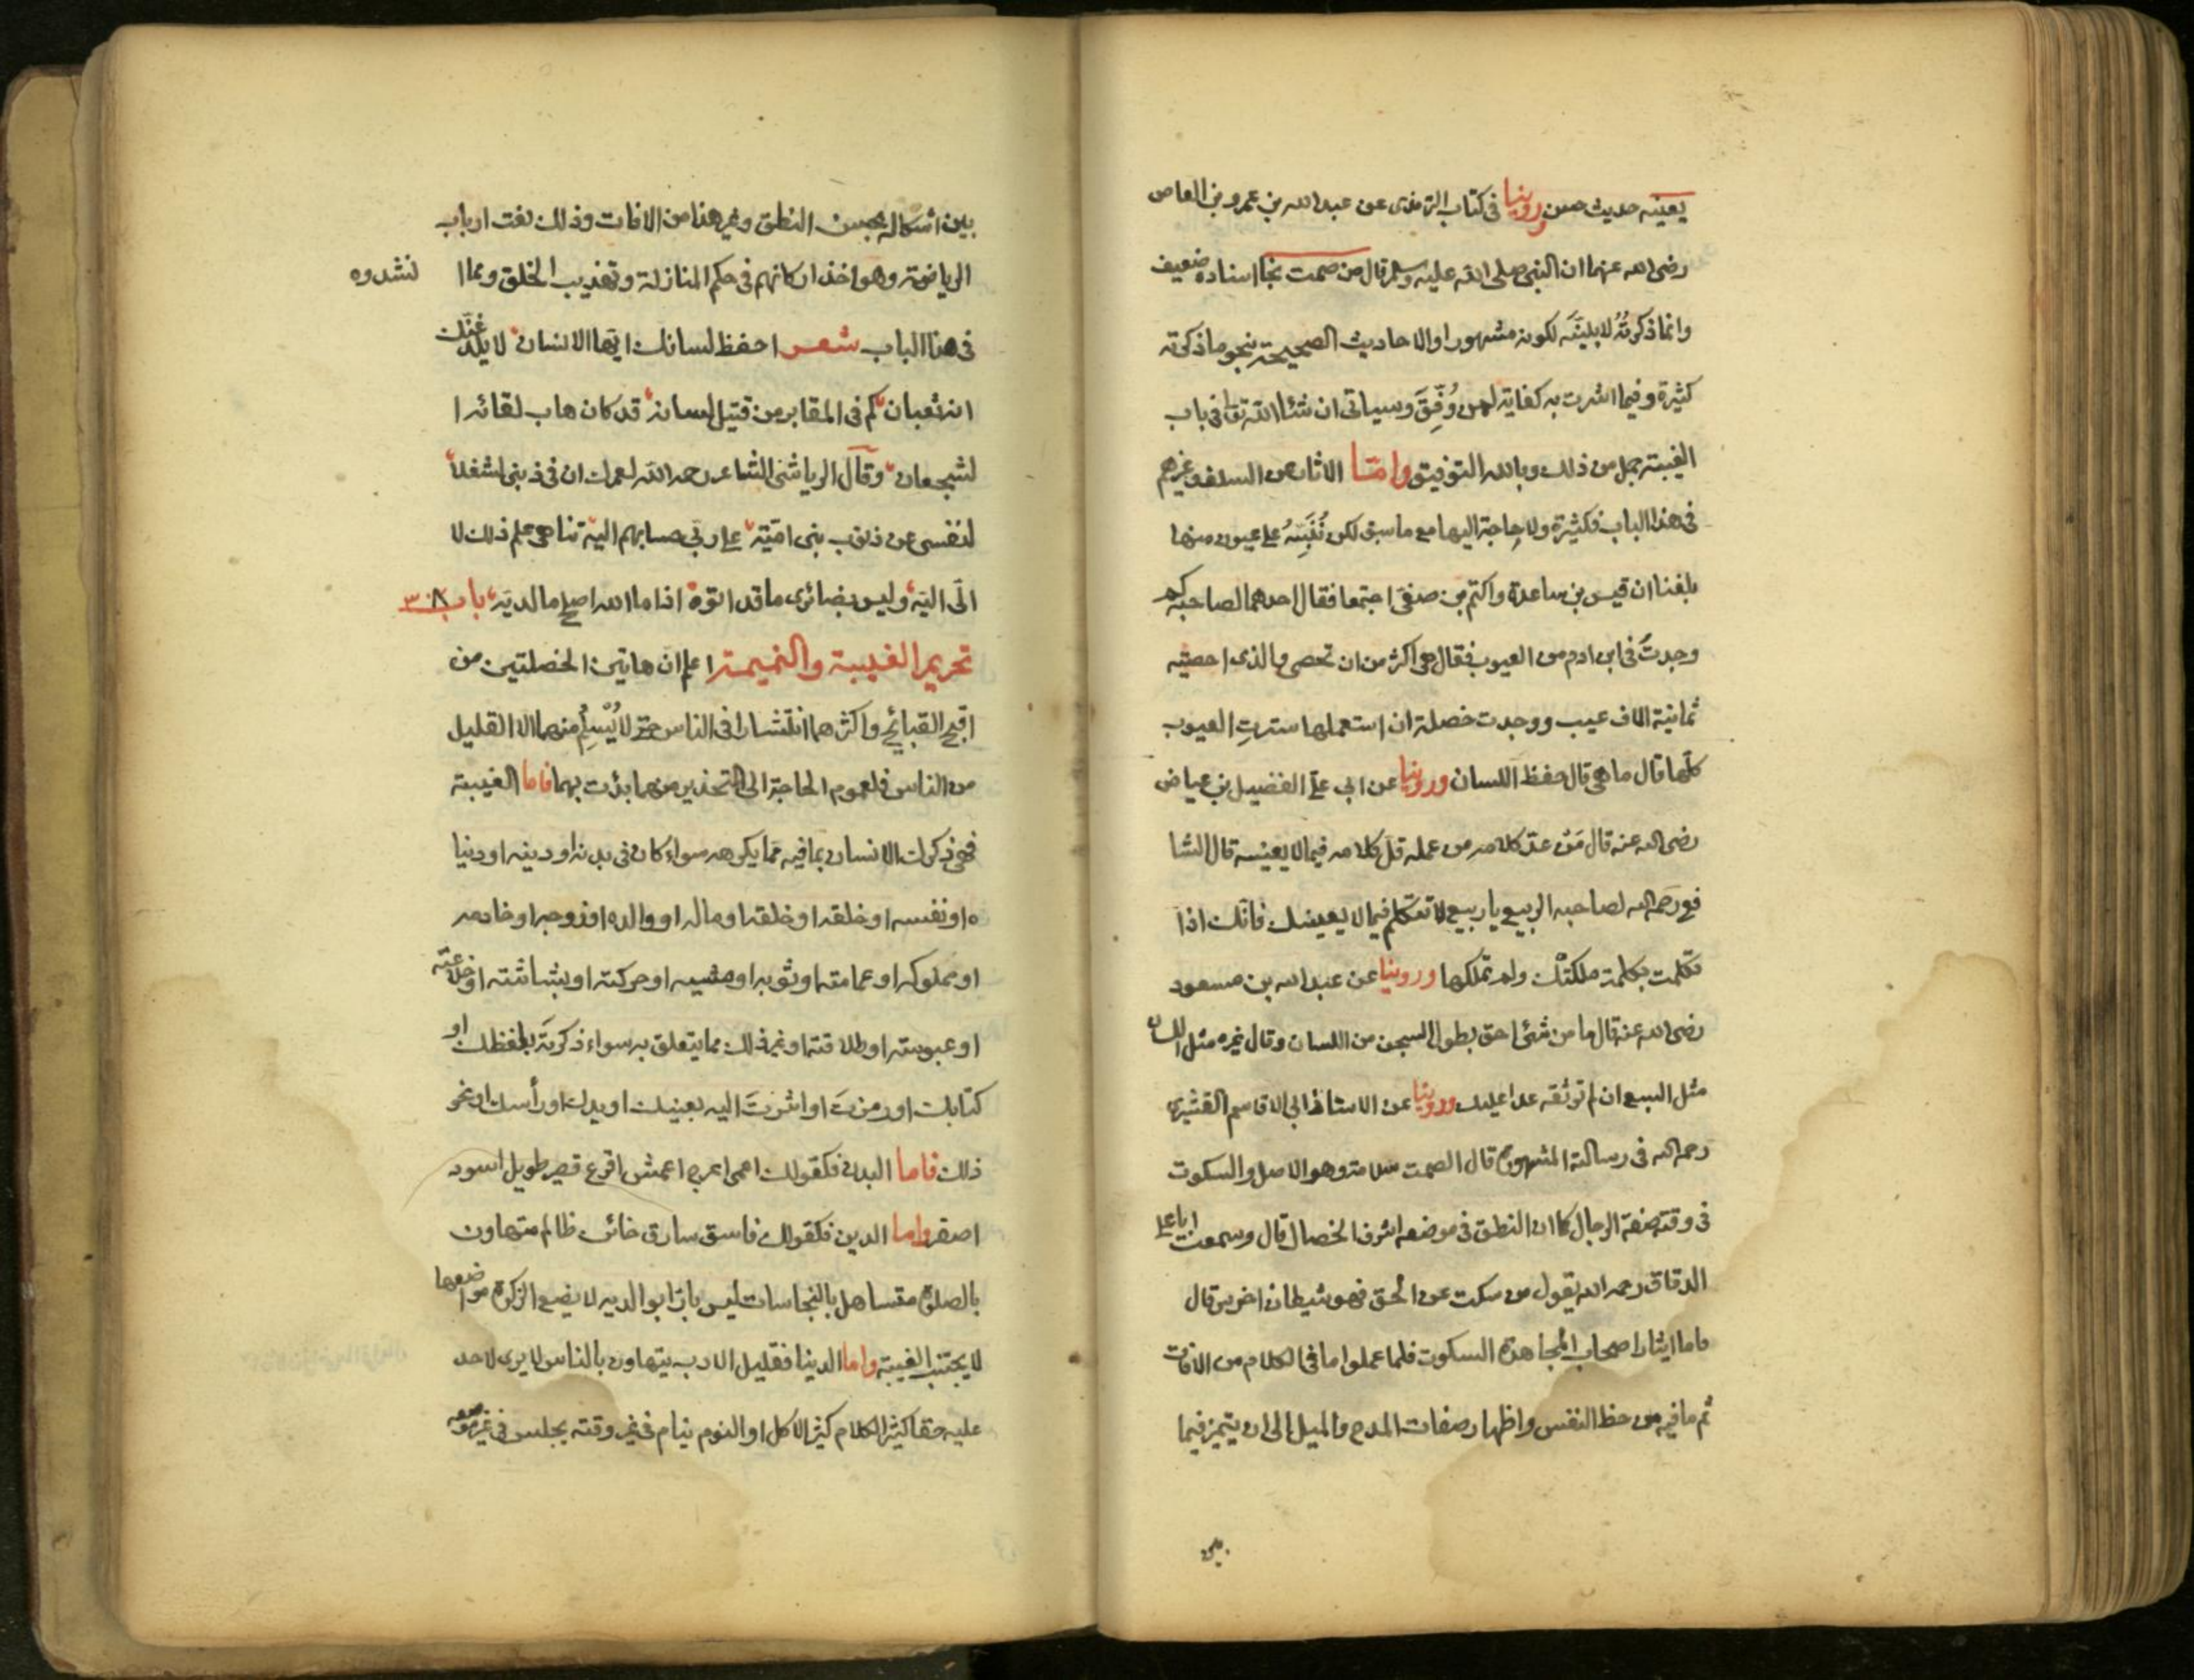 يعنيه حديث حسن روينا فى كتاب الترمذى عن عبد الله بن عمرو بن العاص
رضى الله عنهما ان النبى صلى الله عليه وسلم قال من صمت نجا اسناده ضعيف
وانما ذكرتُهُ لابيّنَه لكونه مشهورا والاحاديث الصحيحة بنحو ما ذكرته
كثيرة وفيما اشرت به كفاية لمن وُفِّقَ وسياتى ان شاء الله تعا فى باب
الغيبة جمل من ذلك وبالله التوفيق وامّا الاثار عن السلف وغيرهم
فى هذا الباب فكثيرة ولا حاجة اليها مع ما سبق لكن نُنَبِّهُ على عيون منها
بلغنا ان قيس بن ساعدة واكثم بن صفى اجتمعا فقال احدهما لصاحبه كم
وجدتَ فى ابن ادم من العيوب فقال هى اكثر من ان تحصى والذى احصيته
ثمانية الاف عيب ووجدت خصلة ان استعملها سترتِ العيوب
كلّها قال ما هى قال حفظ اللسان وروينا عن ابى على الفضيل بن عياض
رضى الله عنه قال مَن عدّ كلامه من عمله قلّ كلامه فيما لا يعنيه قال الشا
فعى رحمه الله لصاحبه الربيع يا ربيع لا تتكلّم فيما لا يعنيك فانّك اذا
تكلمت بكلمة ملكتْك ولم تملكها وروينا عن عبد الله بن مسعود
رضى الله عنه قال ما من شئ احق بطول السجن من اللسان وقال غيره مثل اللسان
مثل السبع ان لم توثقه عدا عليك وروينا عن الاستاذ ابى القاسم القشيرى
رحمه الله فى رسالته المشهورة قال الصمت سلامة وهو الاصل والسكوت
فى وقته صفة الرجال كما ان النطق فى موضعه اشرف الخصال قال وسمعت ابا على
الدقاق رحمه الله يقول من سكت عن الحق فهو شيطان اخرس قال
فاما ايثار اصحاب المجاهدة السكوت فلما عملوا ما فى الكلام من الافات
ثم ما فيه من حظ النفس واظهار صفات المدح والميل الى ان يتميز فيما
بين
بين اشكاله بحسن النطق وغير هذا من الافات وذلك نعت ارباب
الرياضة وهو احذ اركانهم فى حكم المنازلة وتهذيب الخلق ومما انشدوه
فى هذا الباب شعر احفظ لسانك ايّها الانسان لا يلدغنّك
انه ثعبان كم فى المقابر من قتيل لسانه قد كان هاب لقائه ا
لشجعان وقال الرياشى الشاعر رحمه الله لعمرك ان فى ذنبى لشغلاً
لنفسى عن ذنوب بنى اميّة على ربى حسابهم اليه تناهى علم ذلك لا
الى اليّه وليس بضائرى ما قد اتوه اذا ما الله اصلح ما لديّه باب ٣٠٨
تحريم الغيبة والنميمة اعلم ان هاتين الخصلتين من
اقبح القبائح واكثرهما انتشارا فى الناس حتى لا يُسْلِمُ منهما الا القليل
من الناس فلعموم الحاجة الى التحذير منهما بدئت بهما فاما الغيبة
فهى ذكرك الانسان بما فيه ممّا يكرهه سواء كان فى بدنه او دينه او دنيا
ه او نفسه او خلقه او خلقه او ماله او والده او زوجه او خادمه
او مملوكه او عمامته او ثوبه او مشيه او حركته او بشاشته او خلاعته
او عبوسته او طلاقته او غير ذلك مما يتعلق به سواء ذكرتَه بلفظك او
كتابك او رمزتَ او اشرتَ اليه بعينيك او يدك او رأسك او نحو
ذلك فاما البدن فكقولك اعمى اعرج اعمش اقرع قصير طويل اسود
اصفر واما الدين فكقولك فاسق سارق خائن ظالم متهاون
بالصلوة متساهل بالنجاسات ليس بارّا بوالديه لا يضع الزكوة مواضعها
لا يجتنب الغيبة واما الدنيا فقليل الادب يتهاون بالناس لا يرى لاحد
عليه حقا كثير الكلام كثير الاكل او النوم ينام فى غير وقته يجلس فى غير موضعه